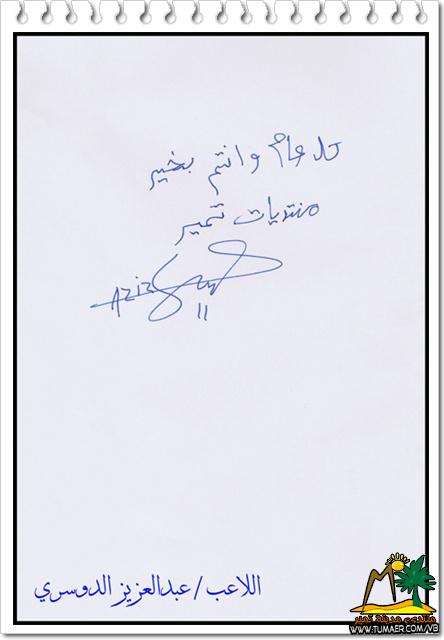 كل عام وانتم بخير
منتديات تمير
Aziz
11
اللاعب/عبدالعزيز الدوسري
منتدى مدينة تمير
WWW.TUMAER.COM/VB